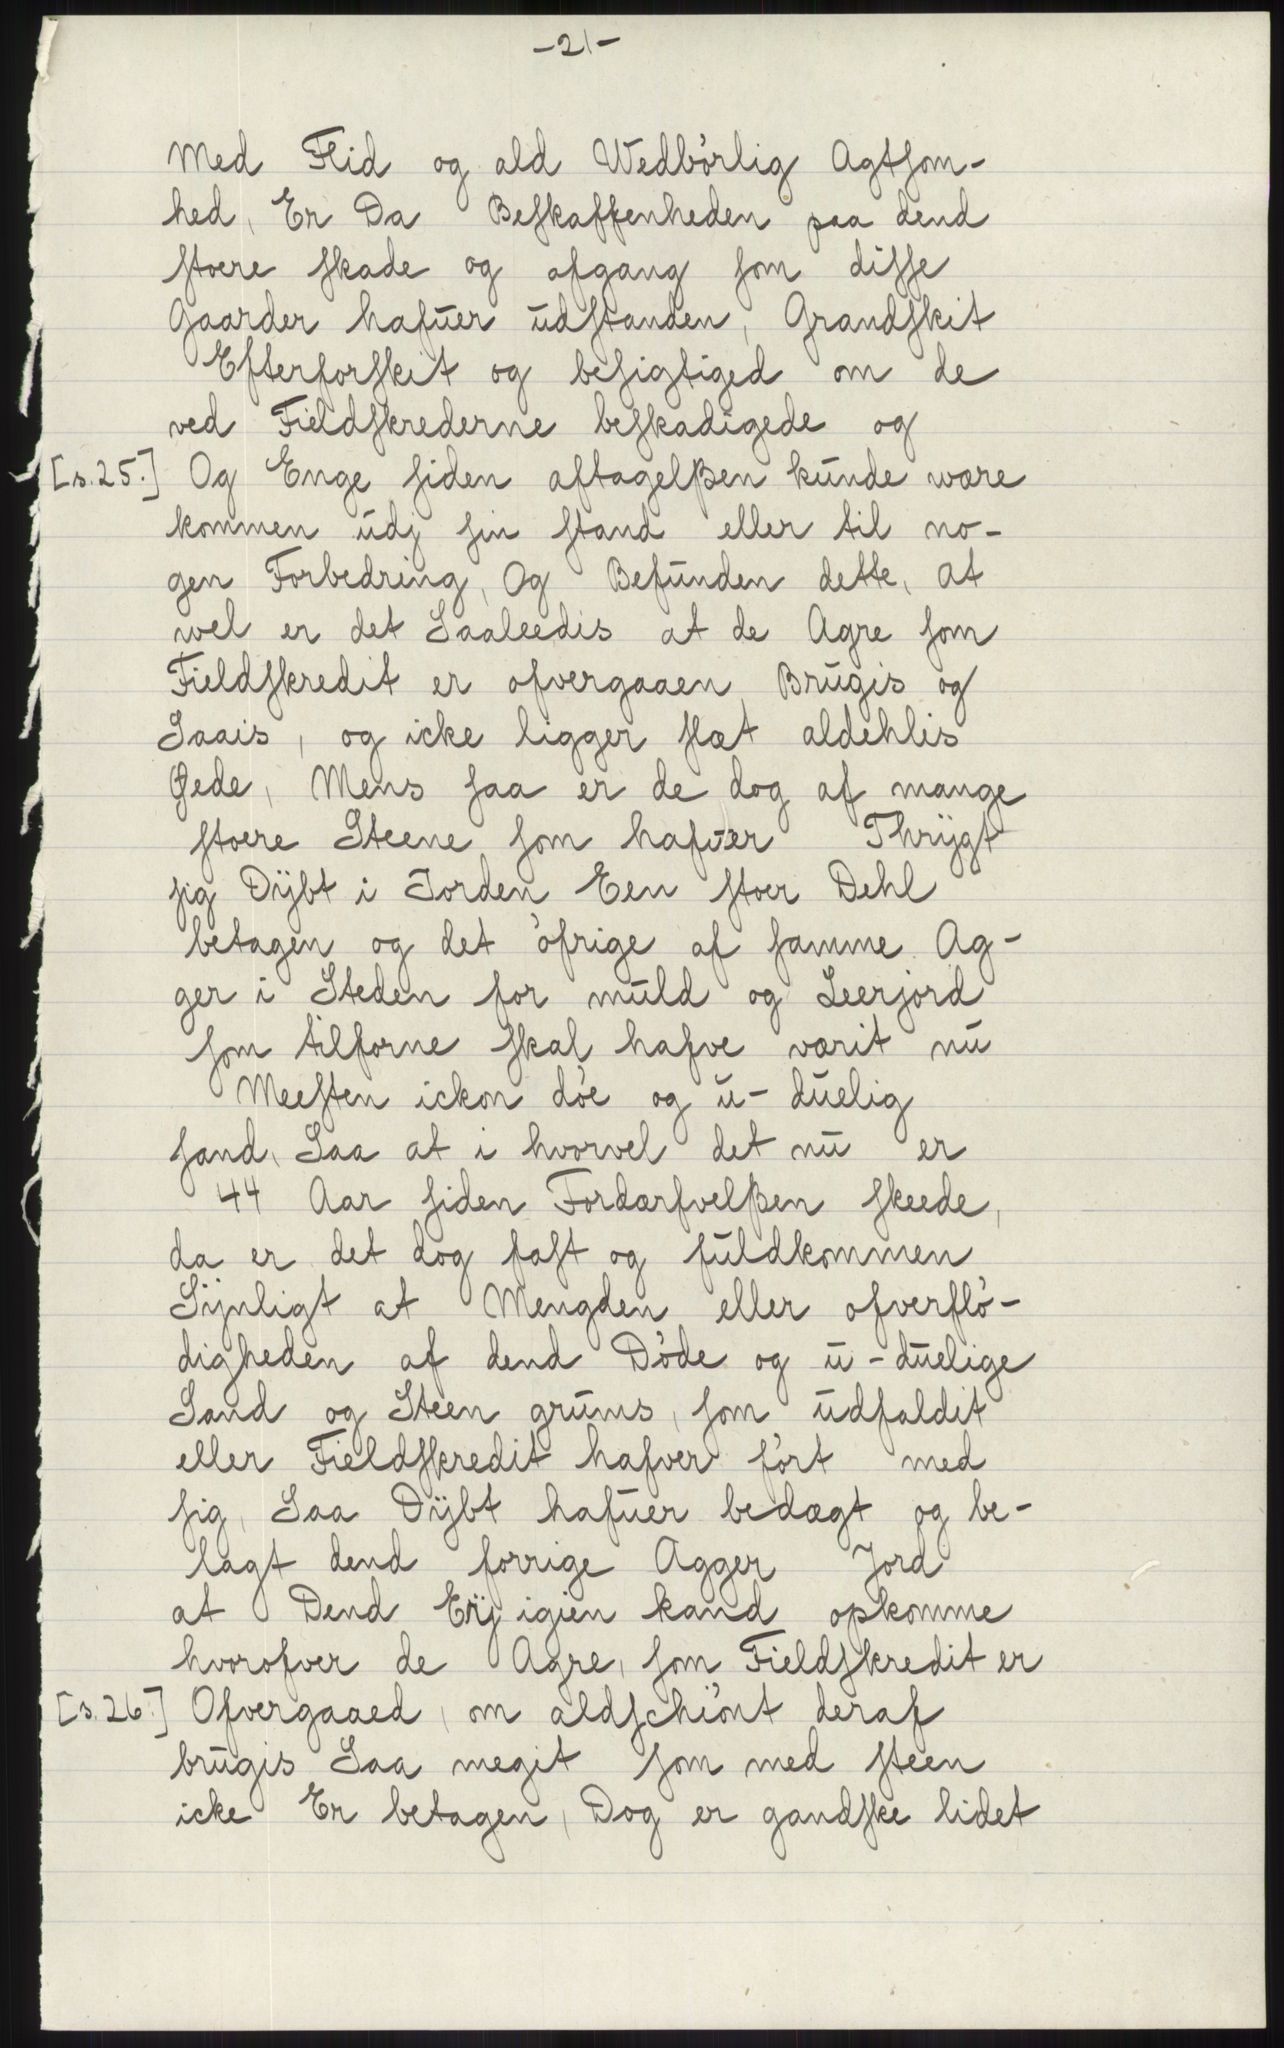 -21-
Med Flid og ald Wedbörlig Agtsom-
hed, Er Da Beskaffenheden paa dend
stoere skade og afgang som disse
Gaarder hafuer udstanden, Grandskit
Efterforskit og besigtiged om de
ved Fieldskrederne beskadigede og
[s.25.] Og Enge siden aftagelßen kunde være
kommen udj sin stand eller til no-
gen Forbedring, Og Befunden dette, at
wel er det Saaleedis at de Agre som
Fieldskredit er ofvergaaen Brugis og
Saais, og icke ligger slæt aldehlis
Øede, Mens saa er de dog af mange
stoere Steene som hafver Thrÿgt
sig Dÿbt i Jorden Een stoer Dehl
betagen og det öfrige af samme Ag-
ger i Steden for muld og Leerjord
som tilforne skal hafve værit nu
Meesten ickon döe og u-duelig
sand, Saa at i hvorvel det nu er
44 Aar siden Fordærfvelßen skeede,
da er det dog fast og fuldkommen
Sÿnligt at Mengden eller ofverflö-
digheden af dend Döde og u-duelige
Sand og Steen grums, som udfaldit
eller Fieldskredit hafver fört med
sig, Saa Dÿbt hafuer bedægt og be-
lagt dend forrige Agger Jord
at Dend Eÿj igien kand opkomme
hvorofver de Agre, som Fieldskredit er
[s.26.] Ofvergaaed, om aldschiönt deraf
brugis Saa megit som med steen
icke Er betagen, Dog er gandske lidet